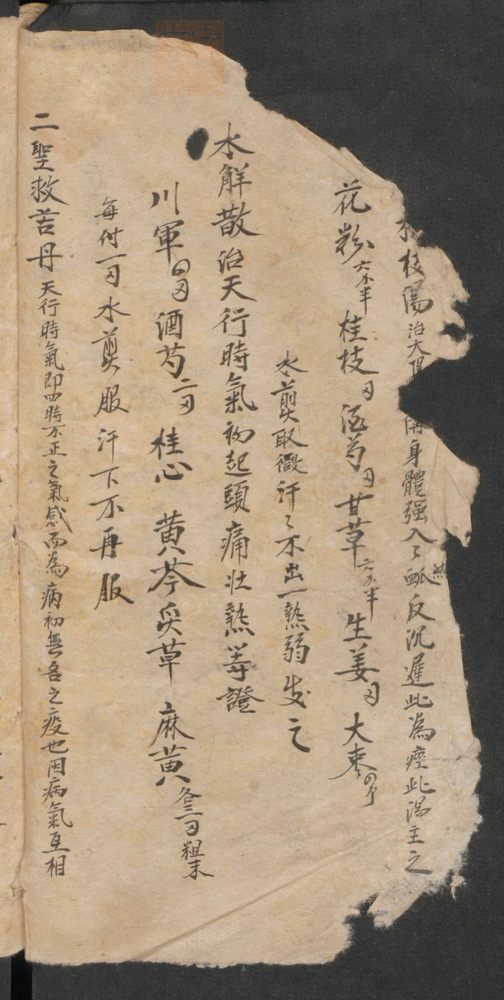 枝湯治太陽 身體强入〻 脈反沉遲此為痙此湯主之
花粉六分半桂枝 酒芍 甘草六分半生姜 大棗四个
水煎取微汗〻不出一熱弱发之
水解散治天行時氣初起頭痛壯熱等證
川軍四 酒芍二 桂心 黃芩炙草 麻黃各三 粗末
每付一 水煎服汗下不再服
二聖救苦丹天行時氣即四時不正之氣感而為病初無名之疫也因病氣互相